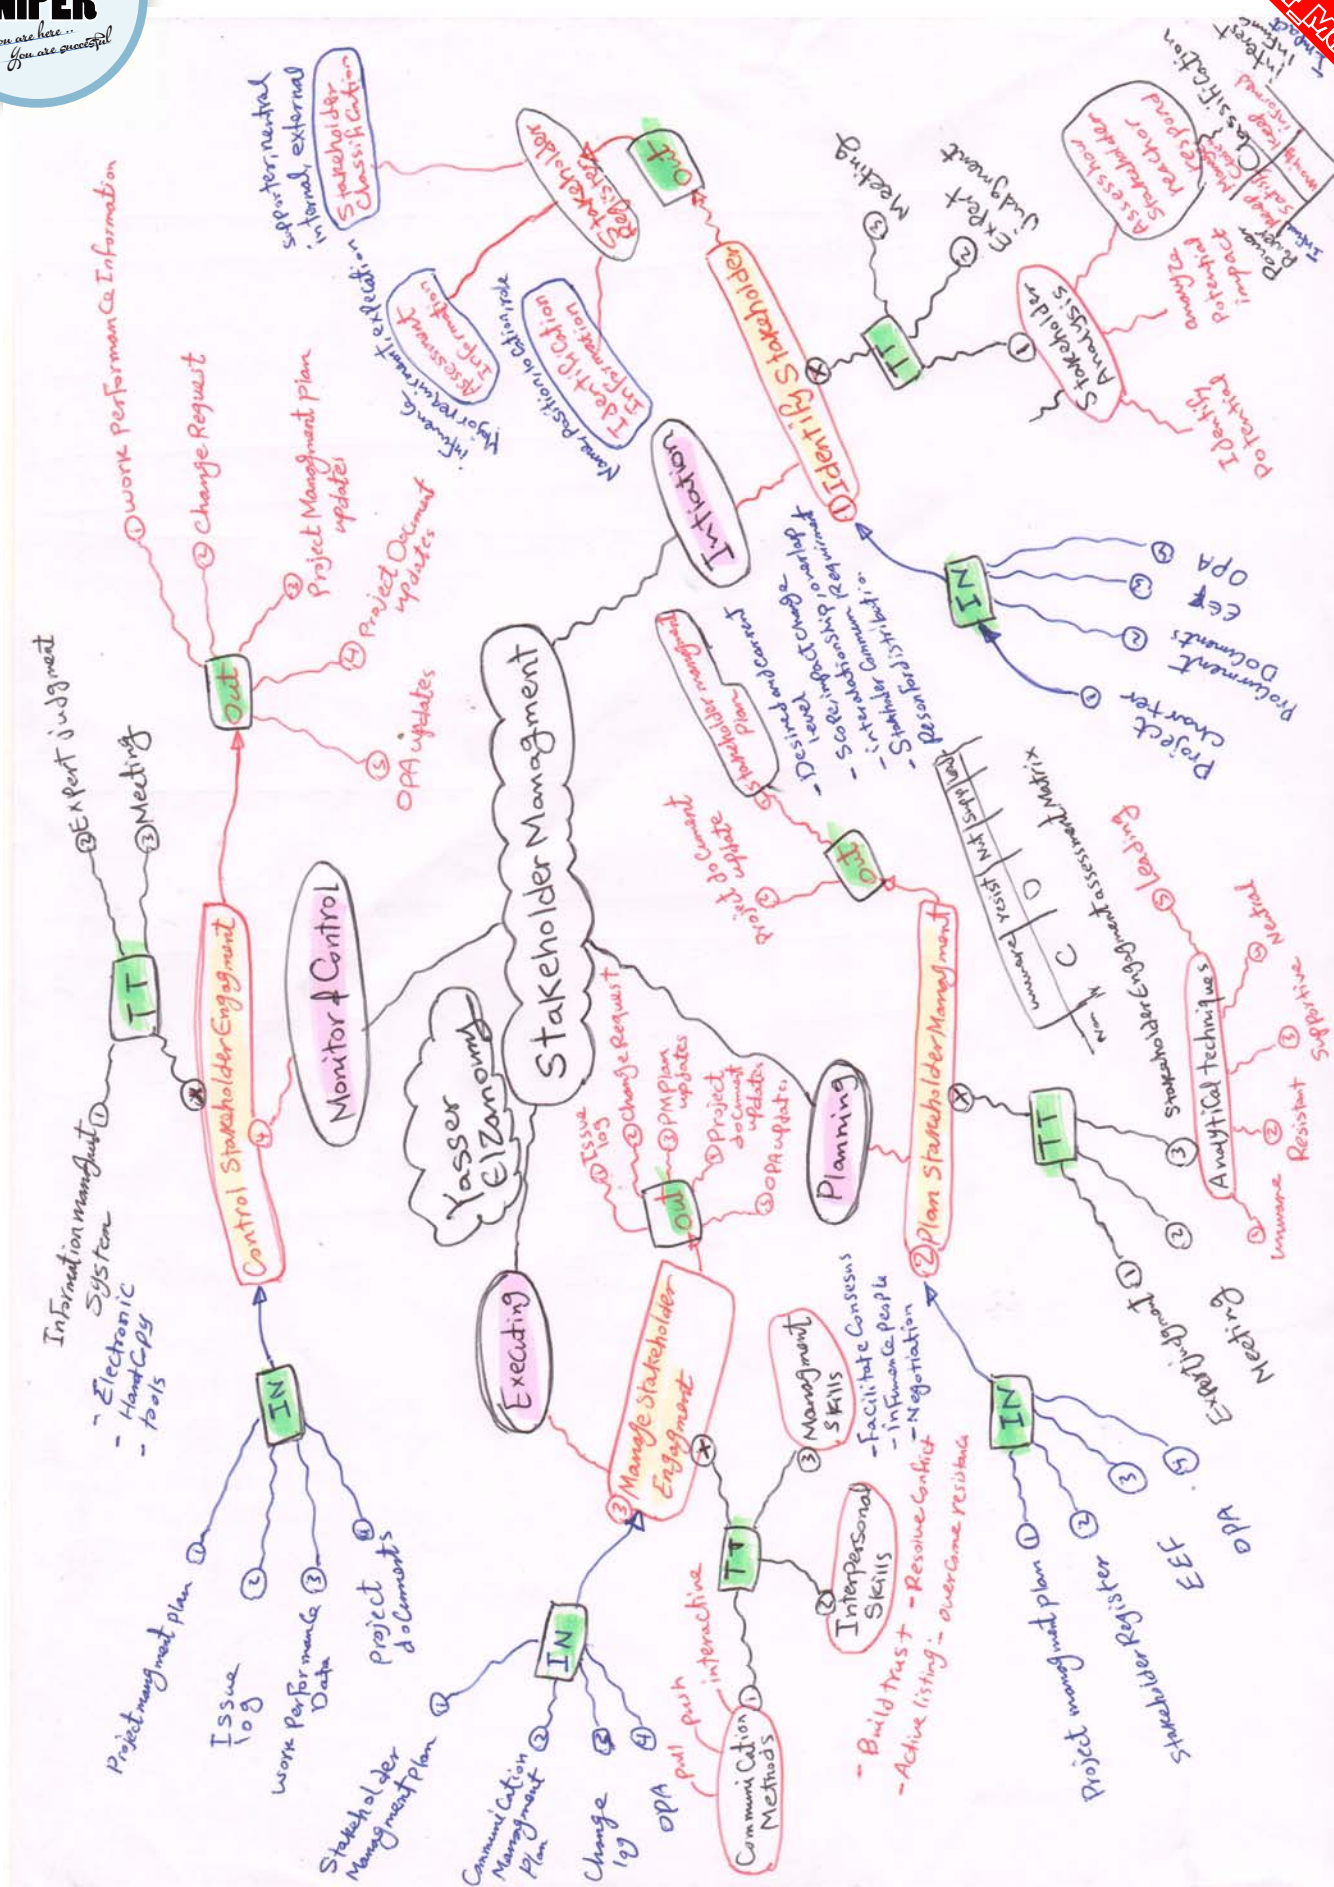 NIPER
you are here ..
You are succesful
Stakeholder Managment
Yasser
Elzanomy
Intiation
① Identify Stakeholder
IN
①
Project
charter
②
Procurment
Documents
③
EEF
④
OPA
TT
①
Stakeholder
Analysis
Identify
Potential
analyze
Potential
impact
Assess how
reach or
Stakeholder
respond
Classification
Power
interest
keep
satisfy
Manage
Closely
Monitor
keep
informed
Impact
② Expert
Judgment
③ Meeting
Out
Stakeholder
Register
Identification
Information
Name, Position, location, role
Assessment
Information
Major requirment, expectation
influence
Stakeholder
Classification
supporter, neutral
internal, external
Planning
② Plan Stakeholder Managment
IN
Project managment plan ①
Stakeholder Register ②
③
EEF
④
OPA
TT
Expert judgment ①
②
Meeting
③
Analytical techniques
① unaware
② Resistant
③ Supportive
④ Neutral
⑤ Leading
Stakeholder Engagment assessment Matrix
unaware | resist | Nut | Supportive
C
O
Out
① Stakeholder managment
Plan
- Desired and current
level
- Scope impact change
- interrelationship / overlap
- Stakholder Commum / Requirment
- Reson for distributio.
② Project document
update
Executing
③ Manage Stakeholder
Engagment
IN
①
Stakeholder
Managment Plan
②
Communication
Managment
Plan
③
Change
log
④
OPA
TT
①
Communication
Methods
pull
push
interactive
②
Interpersonal
Skills
- Build trust
- Resolve Conflict
- Active listing
- overcome resistance
③ Managment
Skills
- Facilitate Consesus
- influence people
- Negotiation
Out
① Issue
log
② Change Request
③ PM Plan
updates
④ Project
document
updates
⑤ OPA updates
Monitor & Control
④
Control Stakeholder Engagment
IN
Project managment plan ①
②
Issue
log
Work Performance ③
Data
④
Project
documents
TT
Information managment ①
System
- Electronic
- Hard Copy
- tools
② Expert judgment
③ Meeting
Out
① Work Performance Information
② Change Request
③
Project Managment plan
updates
④ Project Document
updates
⑤
OPA updates